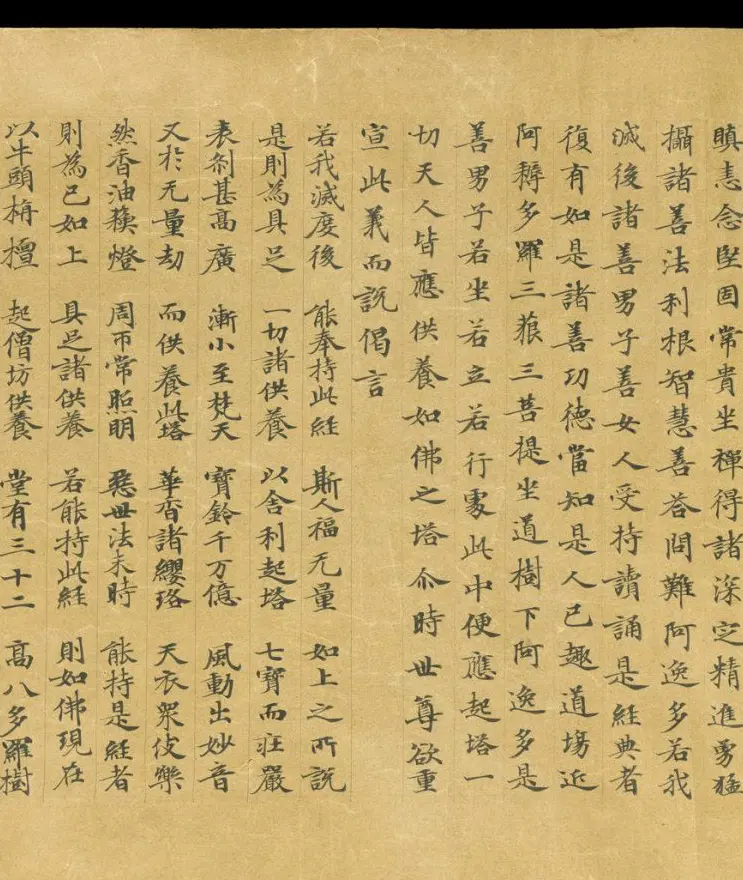 瞋恚念堅固常貴坐禪得諸深定精進勇猛
攝諸善法利根智慧善荅問難阿逸多若我
滅後諸善男子善女人受持讀誦是經典者
復有如是諸善功德當知是人已趣道場近
阿耨多羅三藐三菩提坐道樹下阿逸多是
善男子若坐若立若行處此中便應起塔一
切天人皆應供養如佛之塔尒時世尊欲重
宣此義而說偈言
若我滅度後 能奉持此經 斯人福无量 如上之所說
是則為具足 一切諸供養 以舍利起塔 七寶而莊嚴
表剎甚高廣 漸小至梵天 寶鈴千万億 風動出妙音
又於无量劫 而供養此塔 華香諸纓珞 天衣眾伎樂
然香油蘇燈 周帀常照明 惡世法末時 能持是經者
則為已如上 具足諸供養 若能持此經 則如佛現在
以牛頭栴檀 起僧坊供養 堂有三十二 高八多羅樹